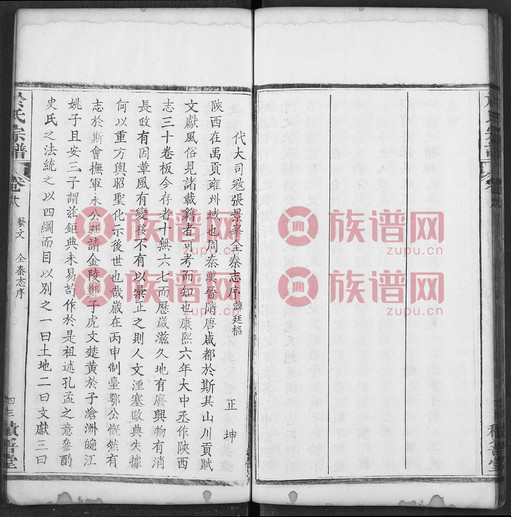 代大司寇張景峯全秦志序 韓廷樞
正坤
陝西在禹貢雍州域也周秦漢晉隋唐咸都於斯其山川貢賦
文獻風俗見諸載籍者可考而知也康熙六年大中丞作陝西
志三十卷板今存者十無六七而歷歲滋久地有廢興物有消
長政有因革風有變移不有以釐正之則人文湮塞政典失據
何以重方輿昭聖化示後世也哉歲在丙申制臺鄂公慨然有
志於斯會撫軍永公請金陵鄭子虎文楚黃於子滄洲皖江
姚子且安三子謂茲鉅典未易詰作於是祖述孔孟之意參酌
史氏之法統之以四綱而目以別之一曰土地二曰文獻三曰
於氏宗譜
卷
藝文 全秦志序
積善堂
族谱网
zupu.cn
族谱网
zupu.cn
族谱网
zupu.cn
族谱网
zupu.cn